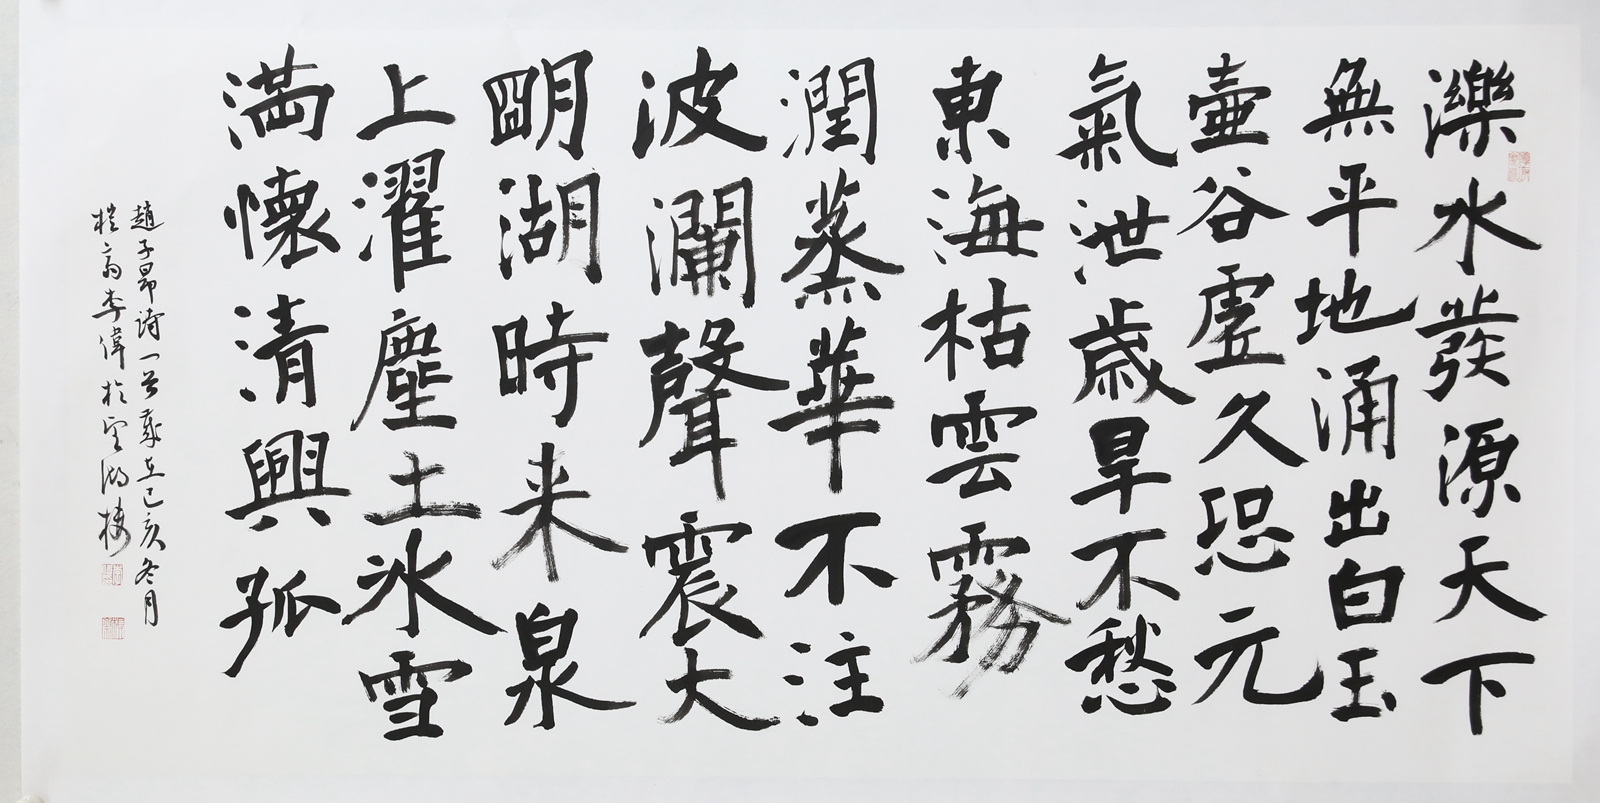 濼水發源天下
無平地涌出白玉
壷谷虛久恐元
氣泄歲旱不愁
東海枯雲霧
潤蒸華不注
波瀾聲震大
明湖時来泉
上濯塵土冰雪
満懷清興孤
趙子昂詩一首歲在己亥冬月
翁李偉於湖楼